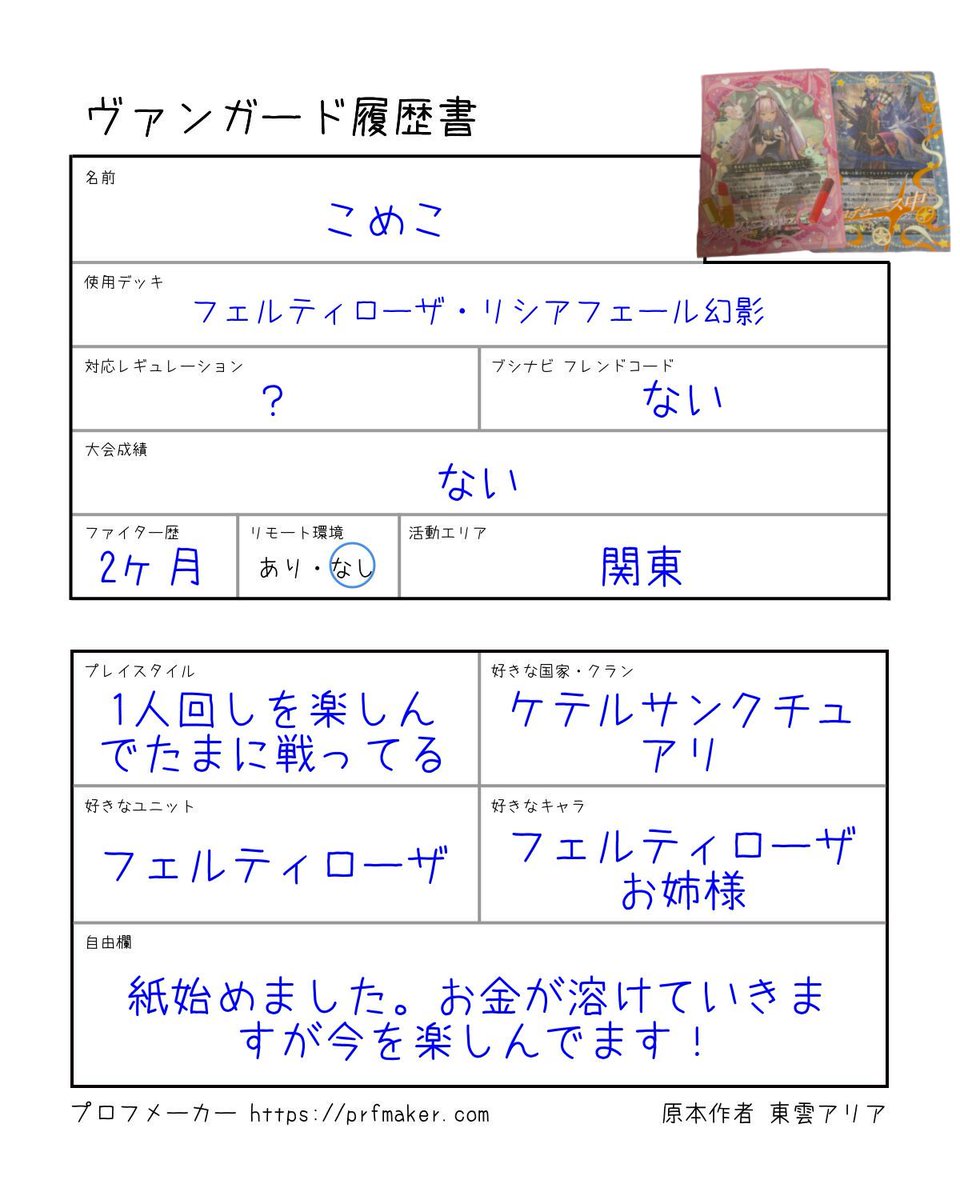 ヴァンガード履歴書
名前
こめこ
使用デッキ
フェルティローザ・リシアフェール幻影
対応レギュレーション
?
ブシナビ フレンドコード
ない
大会成績
ない
ファイター歴
2ヶ月
リモート環境
あり・なし
活動エリア
関東
プレイスタイル
1人回しを楽しん
でたまに戦ってる
好きな国家・クラン
ケテルサンクチュ
アリ
好きなユニット
フェルティローザ
好きなキャラ
フェルティローザ
お姉様
自由欄
紙始めました。お金が溶けていきま
すが今を楽しんでます！
プロフメーカー https://prfmaker.com
原本作者 東雲アリア